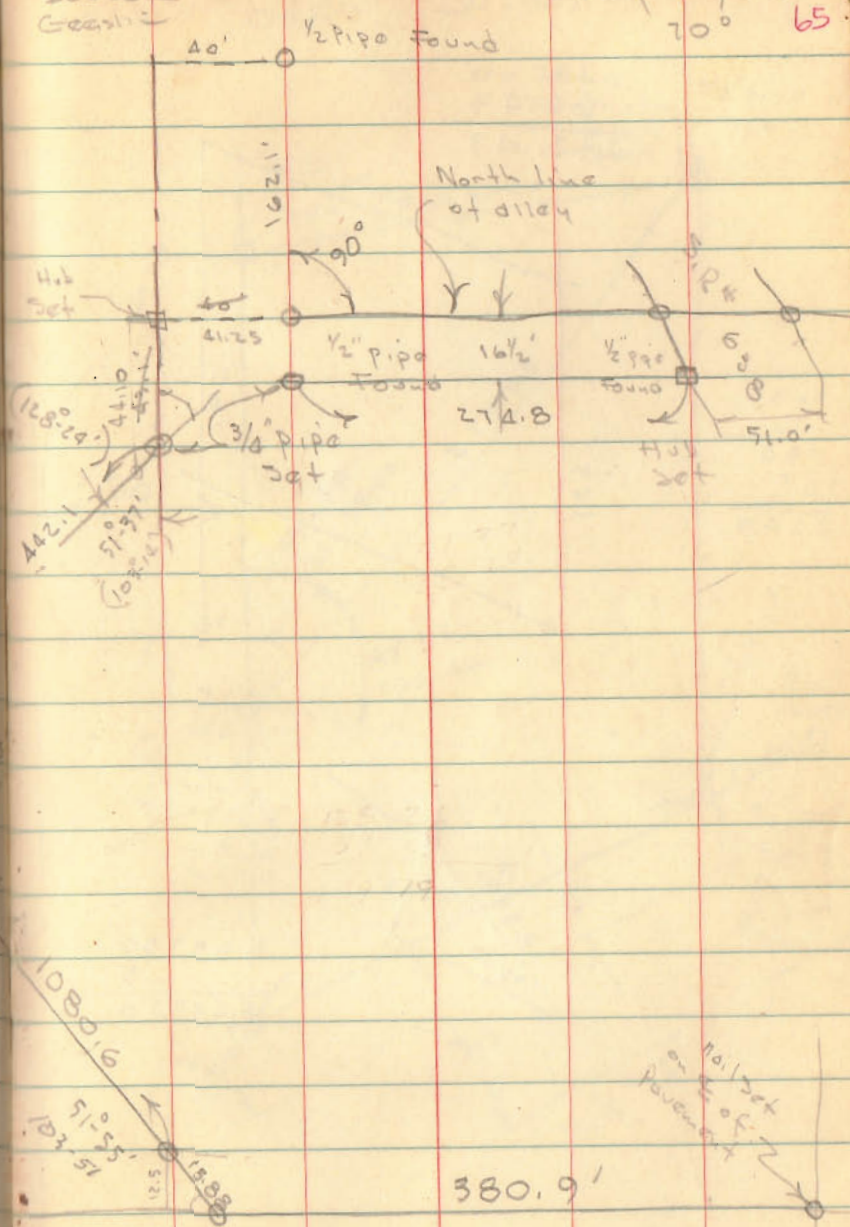 65
70°
40'
1/2 Pipe Found
162.1'
North line
of alley
90°
Hub
Set
40'
41.25
S.R. #
638
1/2" pipe
Found
16 1/2'
1/2" pipe
Found
44.10
128°-24'
3/4" pipe
Set
274.8
Hub
Set
51.0'
442.1
51°-37'
1080.6
51°-55'
103-51
5.21
15.88
380.9'
nail set
on ℄ of
Pavement